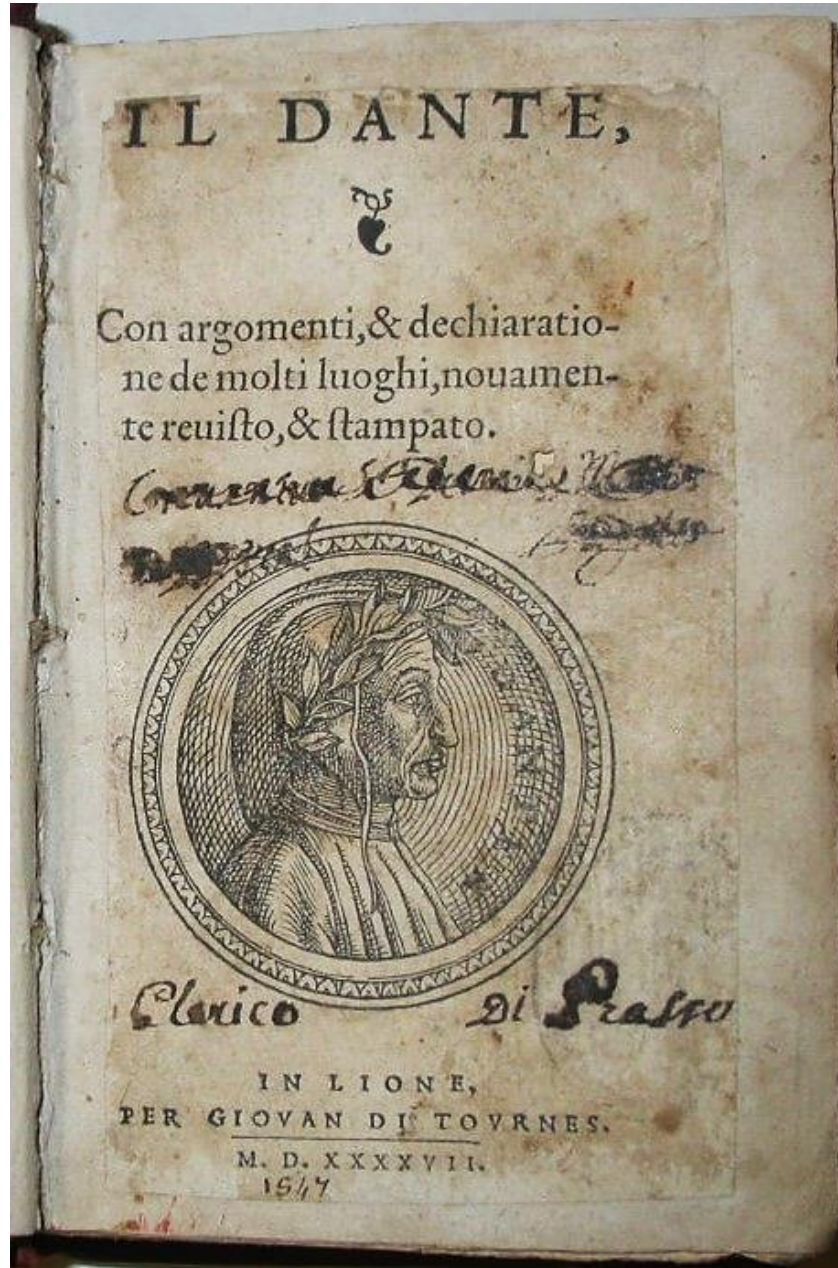 IL DANTE,
Con argomenti,& dechiaratio-
ne de molti luoghi,nouamen-
te reuiſto,& ſtampato.
Clerico Di
IN LIONE,
PER GIOVAN DI TOVRNES.
M. D. XXXXVII.
1547